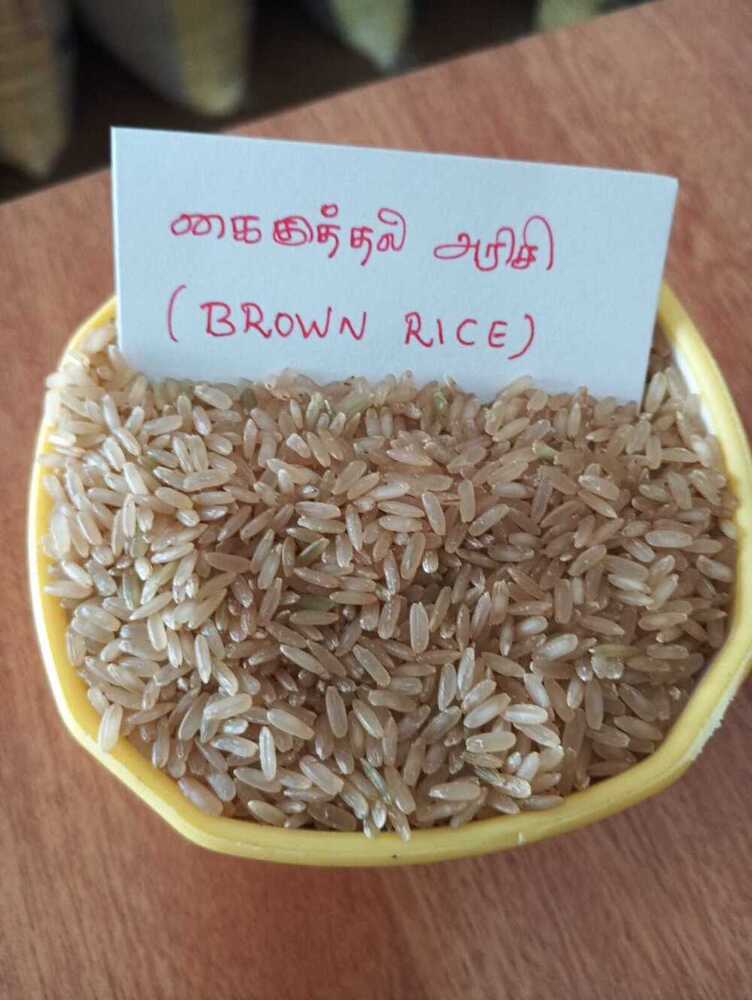 கைகுத்தல் அரிசி
(BROWN RICE)